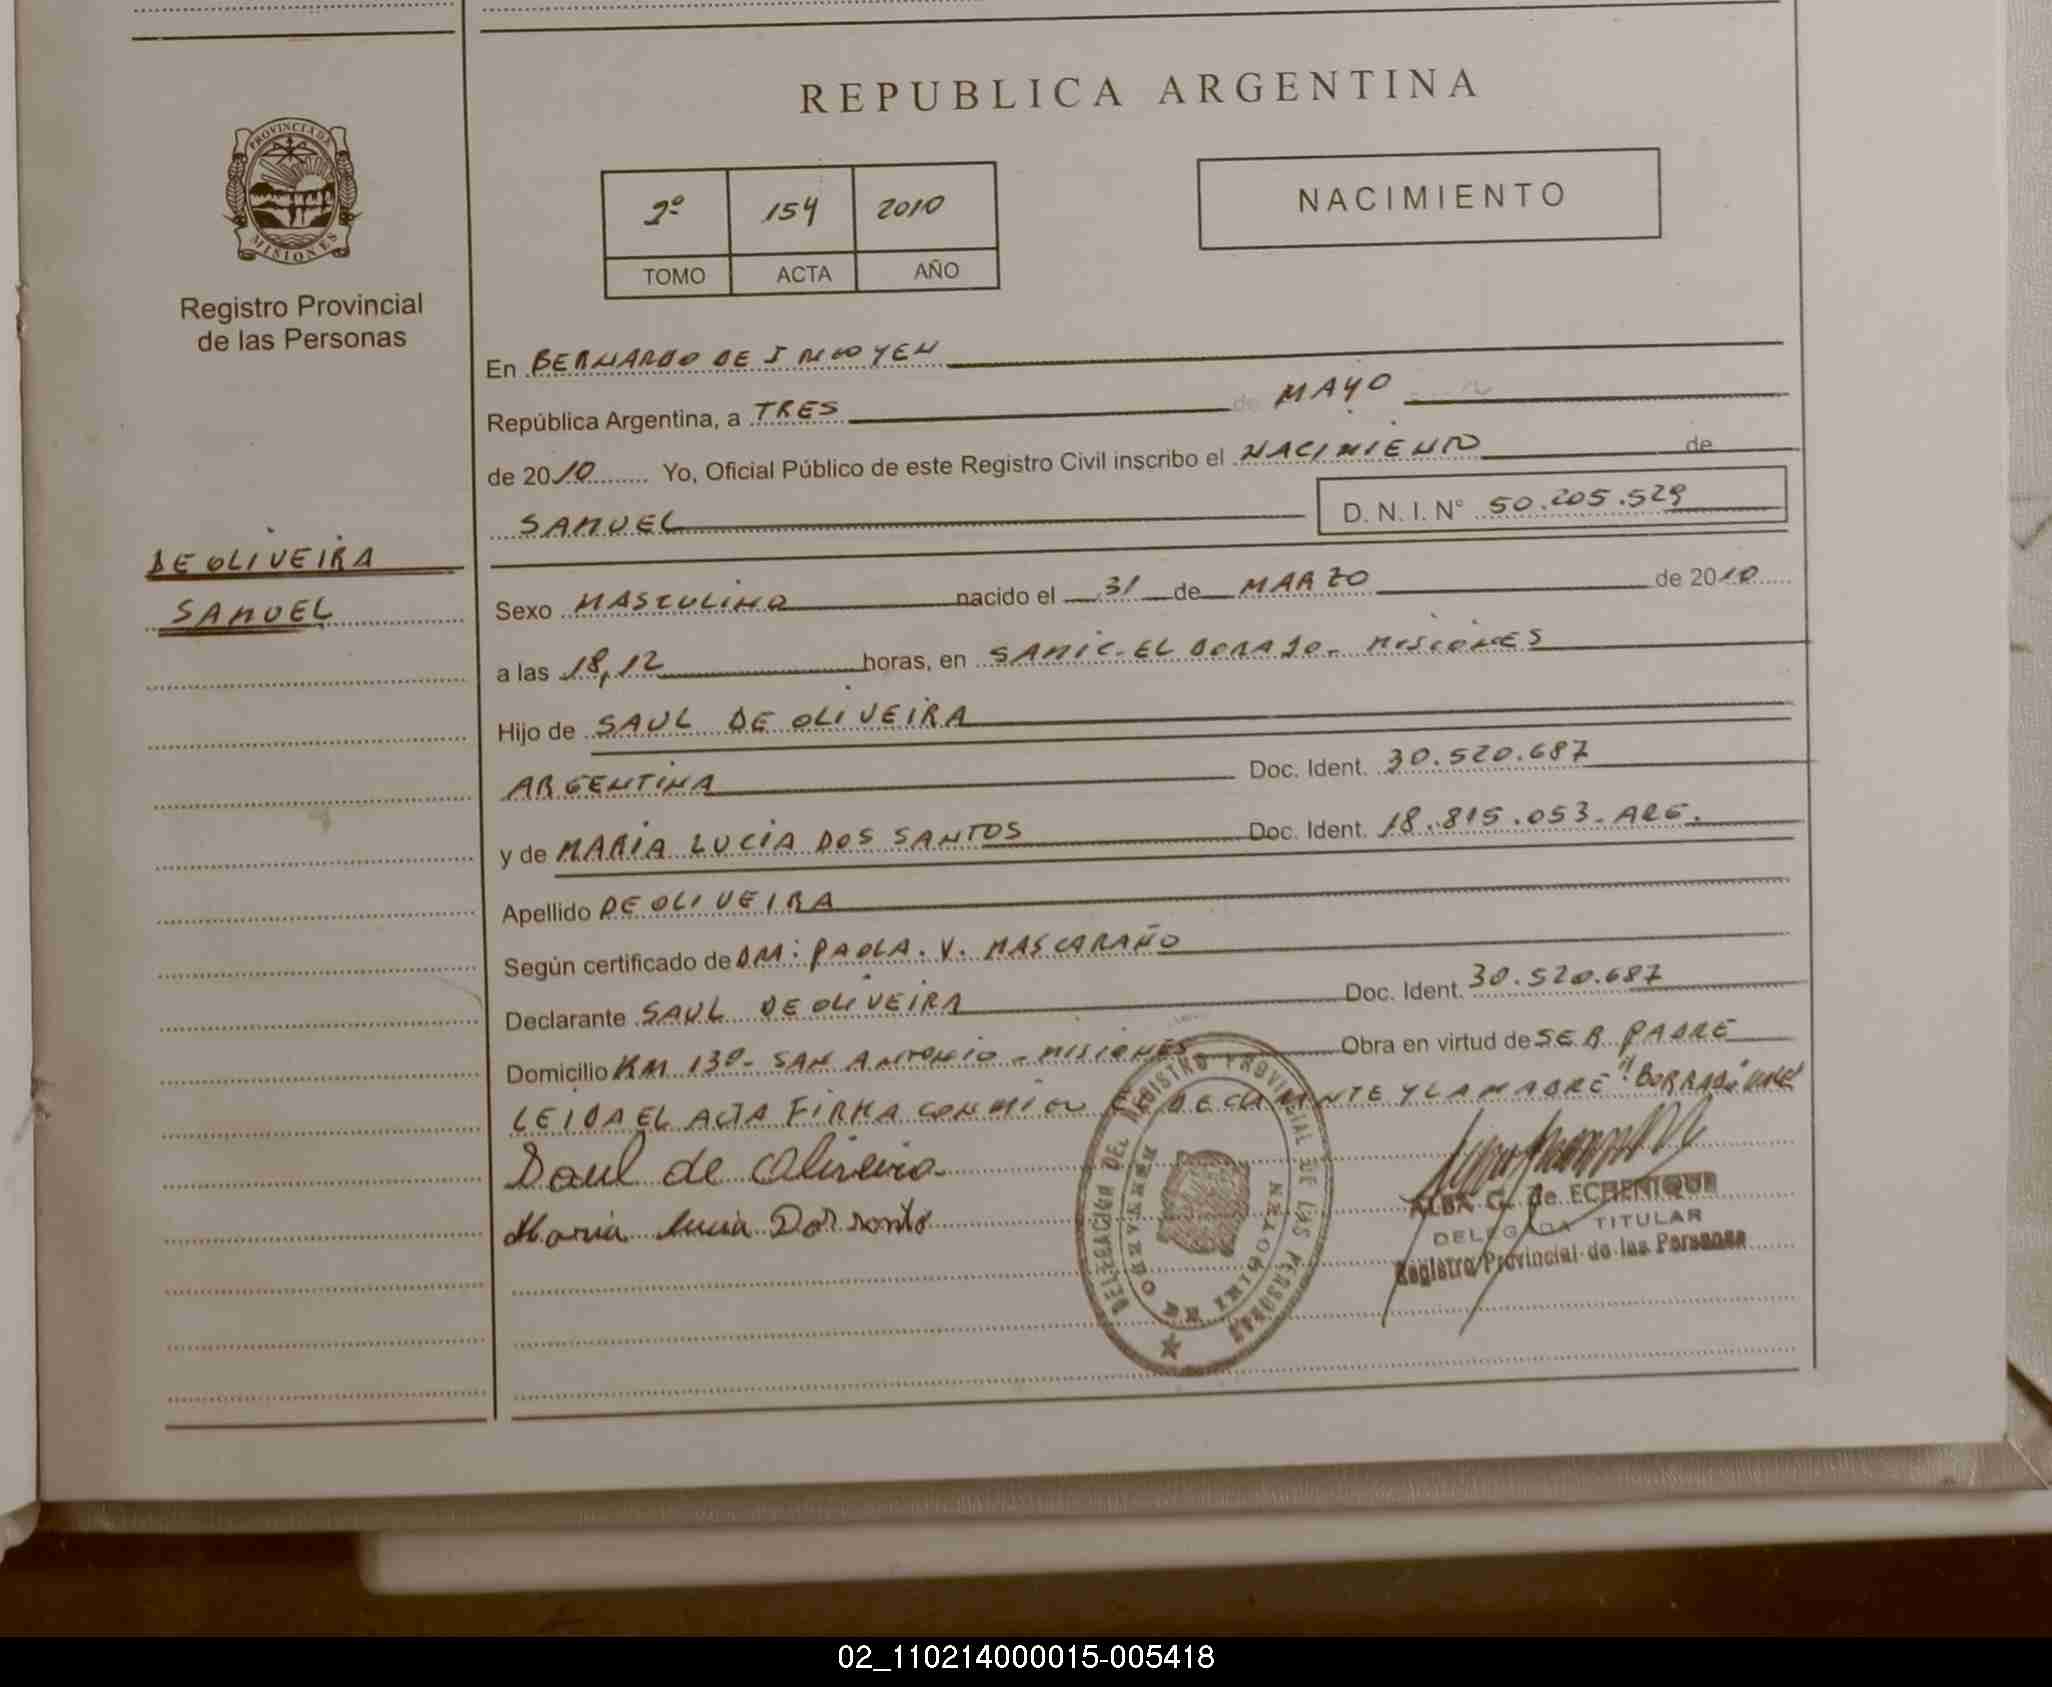 REPUBLICA ARGENTINA
PROVINCIA DE MISIONES
Registro Provincial
de las Personas
2º 154 2010
TOMO ACTA AÑO
NACIMIENTO
En BERNARDO DE IRIGOYEN
República Argentina, a TRES de MAYO
de 2010 Yo, Oficial Público de este Registro Civil inscribo el NACIMIENTO de
SAMUEL D. N. I. N° 50.205.529
DE OLIVEIRA
SAMUEL
Sexo MASCULINO nacido el 31 de MARZO de 2010
a las 18,12 horas, en SAMIC-ELDORADO- MISIONES
Hijo de SAUL DE OLIVEIRA
ARGENTINA Doc. Ident. 30.520.687
y de MARIA LUCIA DOS SANTOS Doc. Ident. 18.815.053- ARG.
Apellido DE OLIVEIRA
Según certificado de PAOLA. V. MASCARAÑO
Declarante SAUL DE OLIVEIRA Doc. Ident. 30.520.687
Domicilio KM 130- SAN ANTONIO - MISIONES Obra en virtud de SER PADRE
LEIDA EL ACTA FIRMA CONMIGO EL DECLARANTE Y LA MADRE "BORRADO" VALE
Saul de Oliveira
Maria Lucia Dos santos
DELEGACION DEL REGISTRO PROVINCIAL DE LAS PERSONAS
BERNARDO DE IRIGOYEN
ALBA G. de ECHENIQUE
DELEGADA TITULAR
Registro Provincial de las Personas
02_110214000015-005418